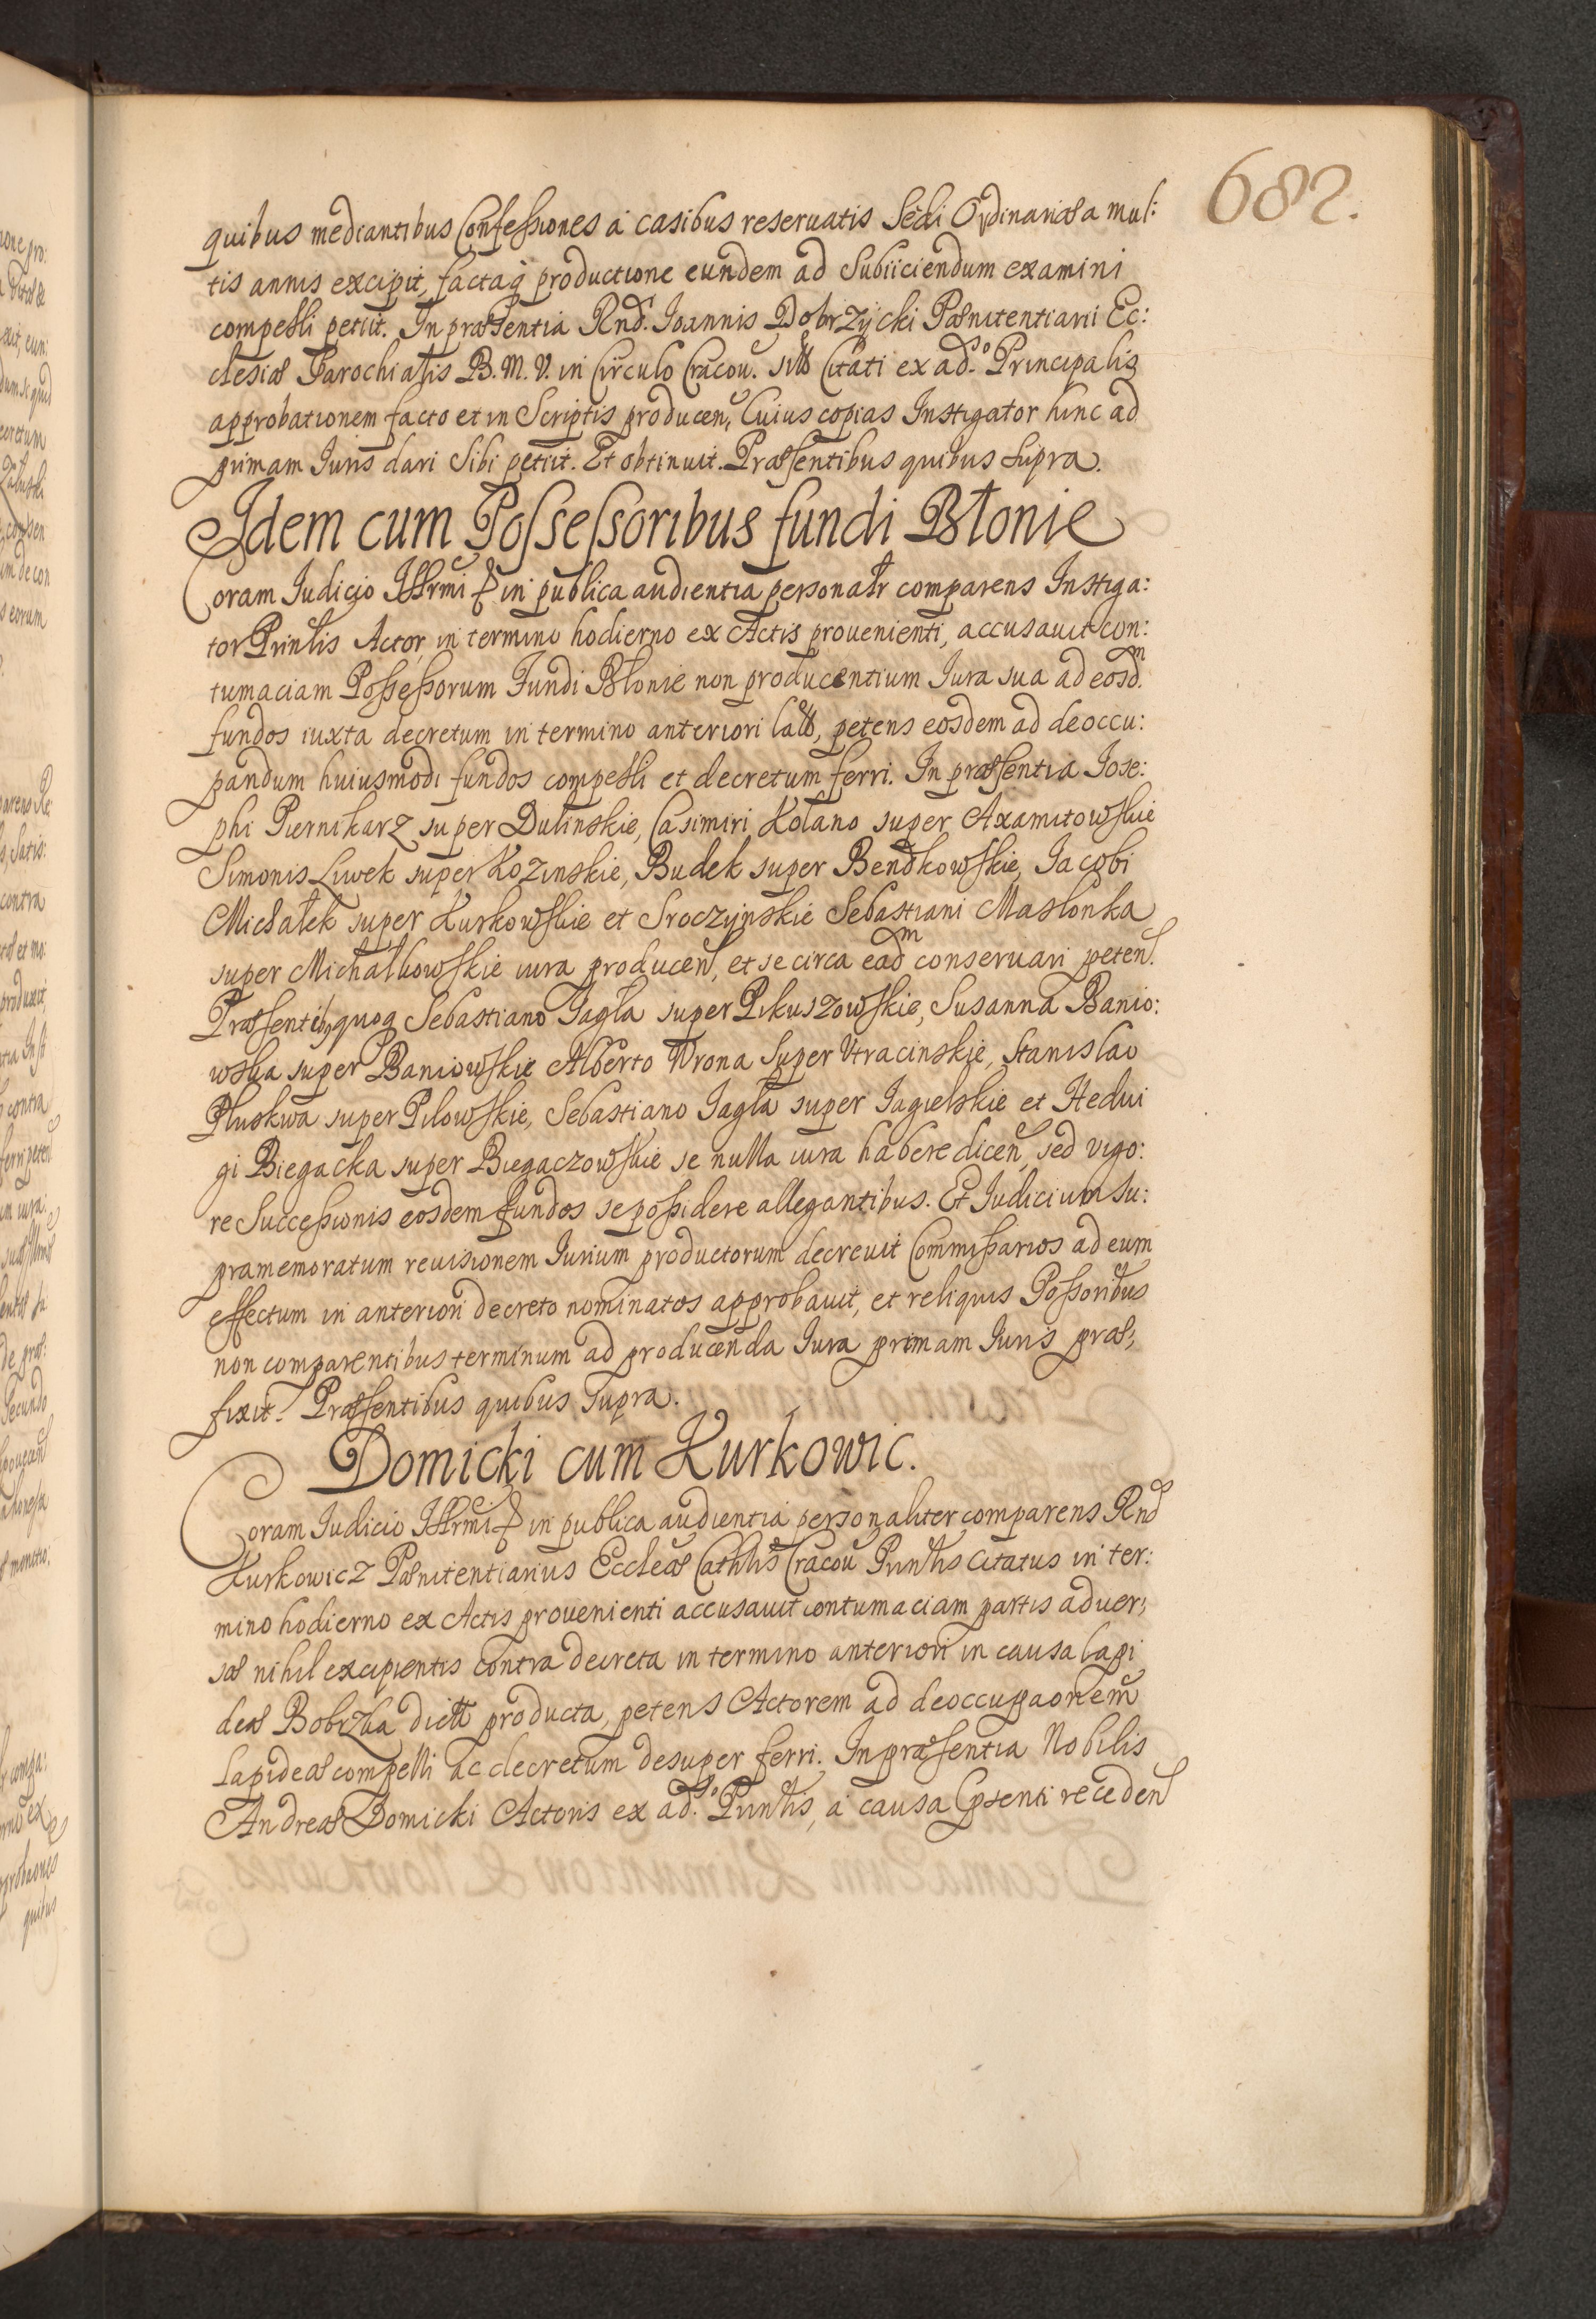 682.
quibus mediantibus Confessiones á casibus reseruatis Sedi Ordinariæ a mul:
tis annis excipit, factaq productione eundem ad Subiiciendum examini
compelli petiit. In præsentia Rnd. Ioannis Dobrzÿcki Pænitentiarii Ec:
clesiæ Parochialis B. M. V. in Circulo Cracou. Citati ex ad.so Principalis
approbationem facto et in Scriptis producen, Cuius copias Instigator hinc ad
primam Iuris dari Sibi petiit. Et obtinuit. Præsentibus quibus Supra.
Idem cum Possessoribus fundi Błonie
Coram Iudicio Illrmi in publica audientia personalr comparens Instiga:
tor Prinlis Actor, in termino hodierno ex Actis prouenienti, accusauit con:
tumaciam Possessorum Fundi Błonie non producentium Iura sua ad eosdm
fundos iuxta decretum in termino anteriori , petens eosdem ad deoccu:
pandum huiusmodi fundos compelli et decretum ferri. In præsentia Iose:
phi Piernikarz super Dulinskie, Casimiri Kolano super Axamitowskie
Simonis Liwek super Kozinskie, Budek super Bendkowskie, Iacobi
Michałek super Kurkowskie et Sroczÿnskie Sebastiani Masłonka
super Michalkowskie iura producen, et se circa eadm conseruari peten.
Præsentibq quoq Sebastiano Jagła super Pikuszowskie, Susanna Banio:
wska super Baniowskie Alberto Wrona Super Vtracinskie, Stanislao
Pluskwa super Pilowskie, Sebastiano Jagła super Jagielskie et Hedui
gi Biegacka super Biegaczowskie se nulla iura habere dicen, sed vigo:
re Successionis eosdem fundos se possidere allegantibus. Et Iudicium su:
pramemoratum reuisionem Iurium productorum decreuit Commissarios ad eum
effectum in anteriori decreto nominatos approbauit, et reliquis Possoribus
non comparentibus terminum ad producenda Iura primam Iuris præ;
fixit. Præsentibus quibus Supra.
Domicki cum Kurkowic.
Coram Iudicio Illrmi in publica audientia personaliter comparens Rnd
Kurkowicz Pænitentiarius Eccleæ Cathlis Cracou Prinlis citatus in ter:
mino hodierno ex Actis prouenienti accusauit contumaciam partis aduer;
sæ nihil excipientis contra decreta in termino anteriori in causa lapi
deæ Bobrzka dictæ producta, petens Actorem ad deoccupaonem
Lapideæ compelli ac decretum desuper ferri. In præsentia Nobilis
Andreæ Domicki Actoris ex ad.so Prinlis, á causa receden